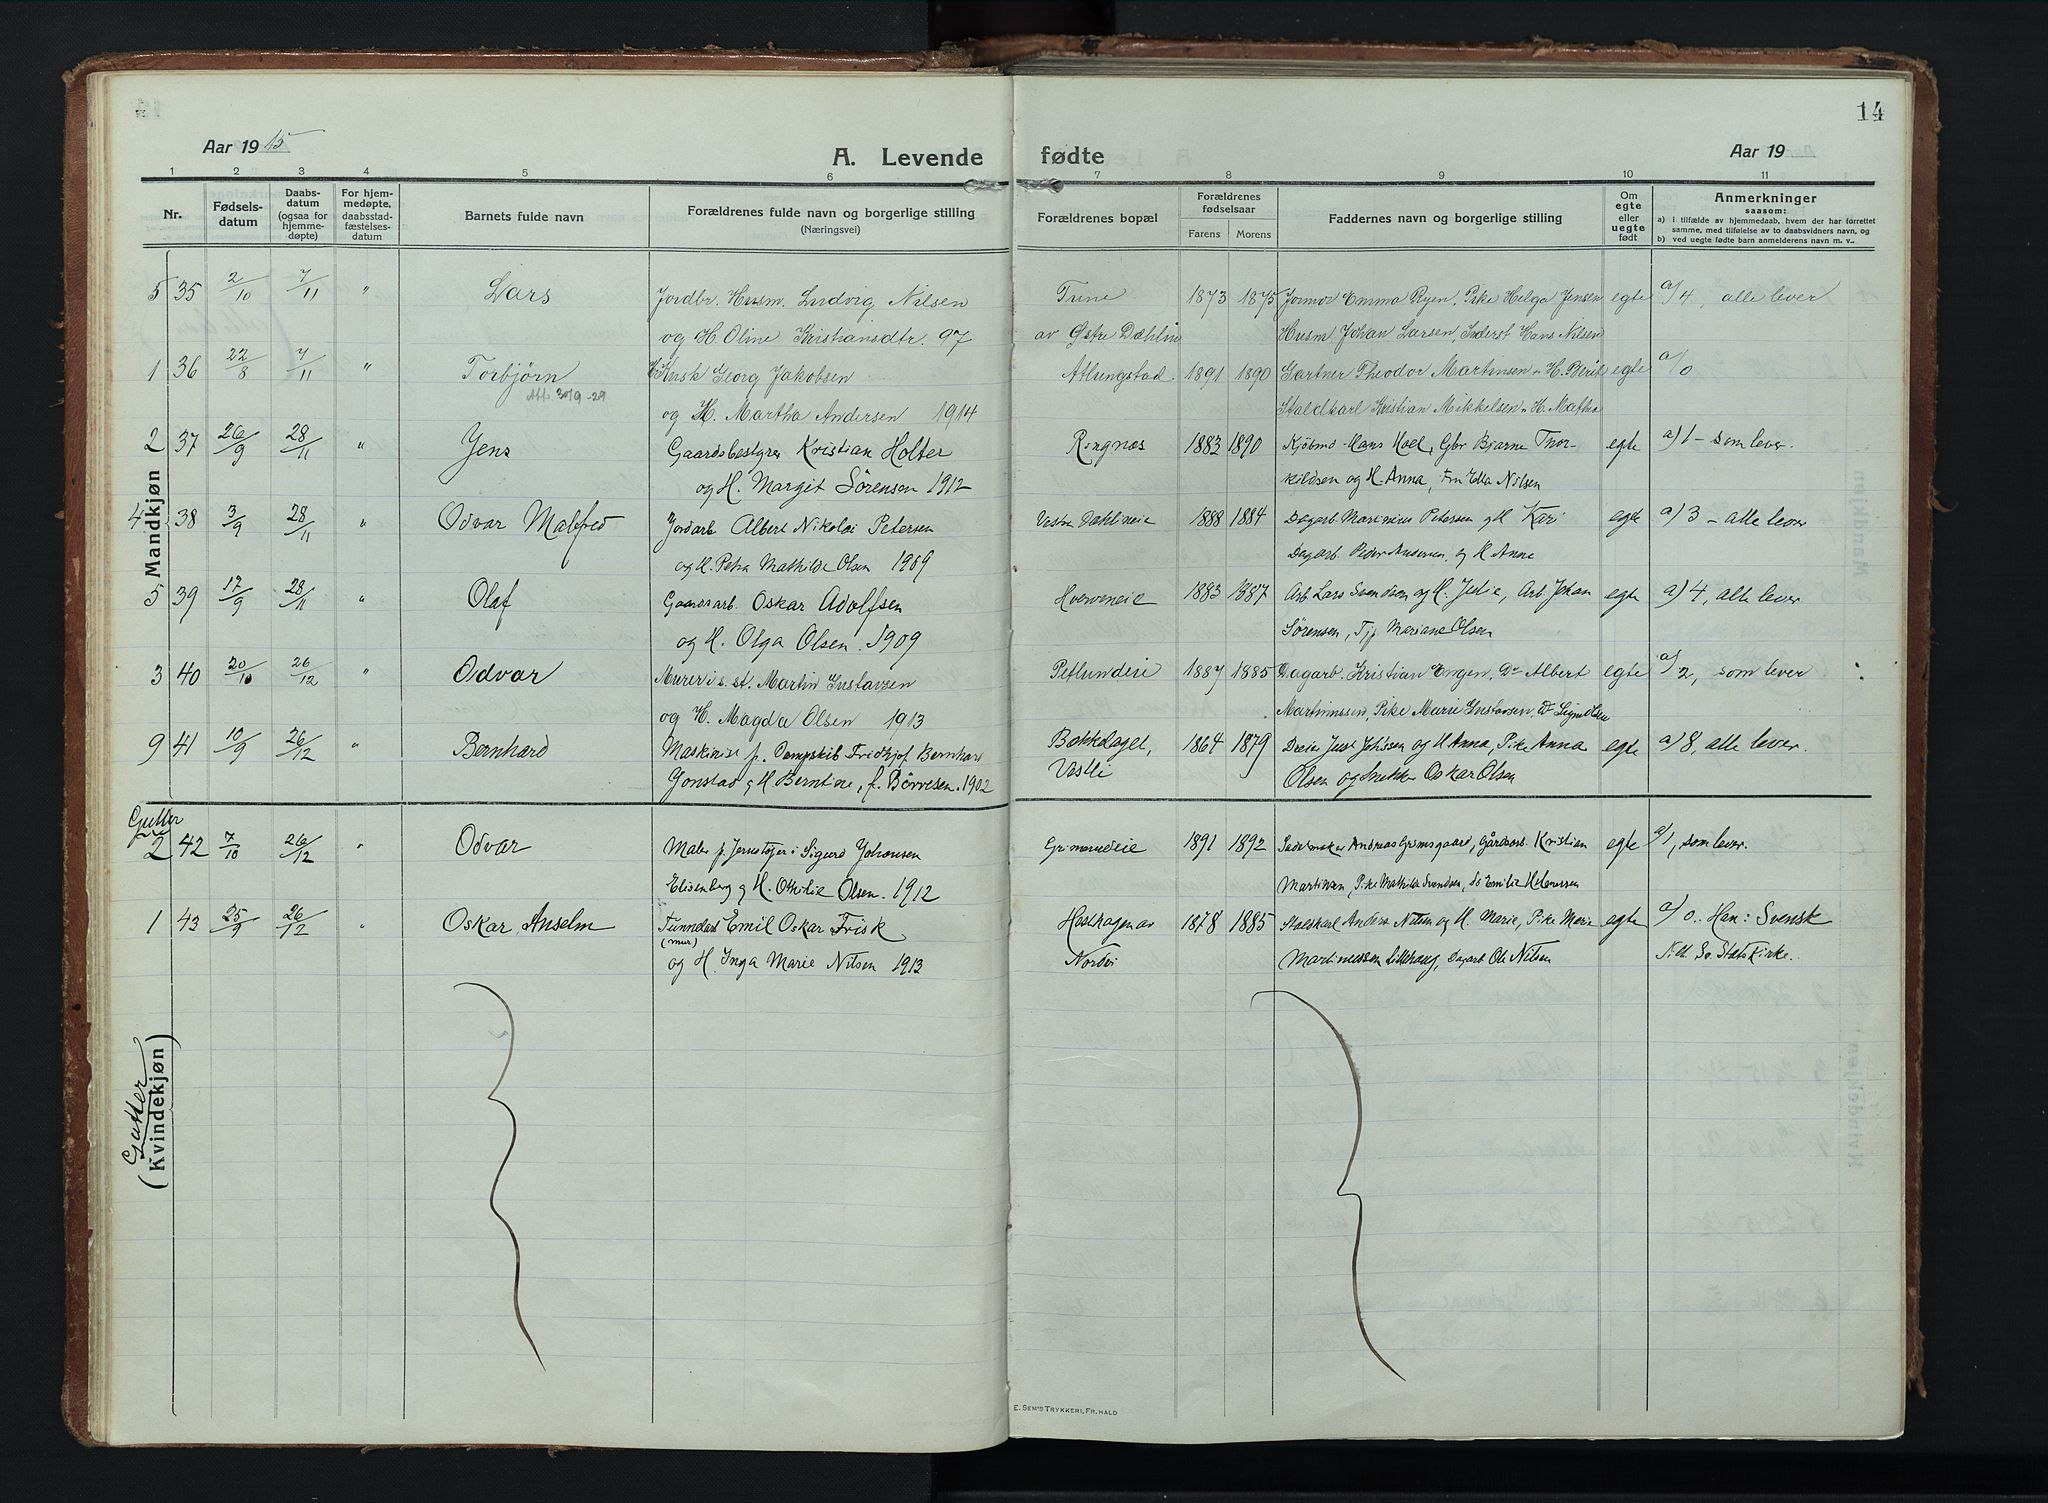 14
Aar 1915
A. Levende fødte
Aar 19
1 2 3 4 5 6 7 8 9 10 11
Nr.
Fødsels-
datum
Daabs-
datum
(ogsaa for
hjemme-
døpte)
For hjem-
medøpte,
daabsstad-
fæstelses-
datum
Barnets fulde navn
Forældrenes fulde navn og borgerlige stilling
(Næringsvei)
Forældrenes bopæl
Forældrenes
fødselsaar
Farens Morens
Faddernes navn og borgerlige stilling
Om
egte
eller
uegte
født
Anmerkninger
saasom:
a) i tilfælde av hjemmedaab, hvem der har forrettet
samme, med tilføielse av to daabsvidners navn, og
b) ved uegte fødte barn anmelderens navn m. v..
Mandkjøn
5 35 2/10 7/11 " Lars Jordbr. Husm. Ludvig Nilsen Trine 1873 1875 Jormor Emma Ryen, Pike Helga Jensen egte a/4, alle lever
og H. Oline Kristiansdtr. 97 av Østre Dæhlin Husm. Johan Larsen, Inderst Hans Nilsen
1 36 22/8 7/11 " Torbjørn Kusk Georg Jakobsen Atlungstad 1891 1890 Gartner Theodor Martinsen H. Berit egte a/0
Att. 3079-29 og H. Martha Andersen 1914 Staldkarl Kristian Mikkelsen H. Matha
2 37 26/9 28/11 " Jens Gaardsbestyrer Kristian Holter Ringnæs 1883 1890 Kjøbmd Hans Hoel, Gbr Bjarne Thor- egte a) 1 - som lever.
og H. Margit Sørensen 1912 kildsen og H. Anna, Frk Ella Nilsen
4 38 3/9 28/11 " Odvar Malfred Jordarb Albert Nikolai Petersen Vestre Dæhlineie 1888 1884 Dagarb Marinius Petersen og H Kari egte a) 3 - alle lever
og H. Petra Mathilde Olsen 1909 Dagarb. Peder Andersen og H Anne
5 39 17/9 28/11 " Olaf Gaardsarb. Oskar Adolfsen Hverveneie 1883 1887 Arb Lars Svendsen og H. Julie, Arb. Johan egte a) 4, alle lever
og H. Olga Olsen. 1909 Sørensen, Tjg Mariane Olsen
3 40 20/10 26/12 " Odvar Murer i s. st. Martin Gustavsen Petlundeie 1887 1885 Dagarb. Kristian Engen, Do Albert egte a/2, som lever
og H. Magda Olsen 1913 Martinussen, Pike Marie Gustavsen, Do Signe Olsen
9 41 10/9 26/12 " Bernhard Maskinist p. Dampskib Fridtjof Bernhard Bækkelaget, 1864 1879 Dreier Just Johssen og H Anna, Pike Anna egte a) 8, alle lever.
Jonstad og H Berntine, f. Børresen. 1902 Vestli Olsen og snekker Oskar Olsen
Gutter
2 42 7/10 26/12 " Odvar Maler p. Jernstøperi Sigurd Johansen Grimerudeie 1891 1892 Sadelmaker Andreas Grimsgaard, Gårdsarb. Kristian egte a/1, som lever.
Elisenberg og H. Othilie Olsen. 1912 Martinsen, Pike Mathilde Svendsen, do Emilie Halvorsen
1 43 25/9 26/12 " Oskar Anselm Tunndarb Emil Oskar Frisk Haslehagen av 1878 1885 Staldkarl Anders Nilsen og H. Marie, Pike Marie egte a/ 0. Han: Svensk
(mur)
og H. Inga Marie Nilsen 1913 Nordvi Martinussen Lillehaug, Dagarb Ole Nilsen Sv. Statskirke.
Gutter
(Kvindekjøn)
E. SEM'S TRYKKERI, FR. HALD